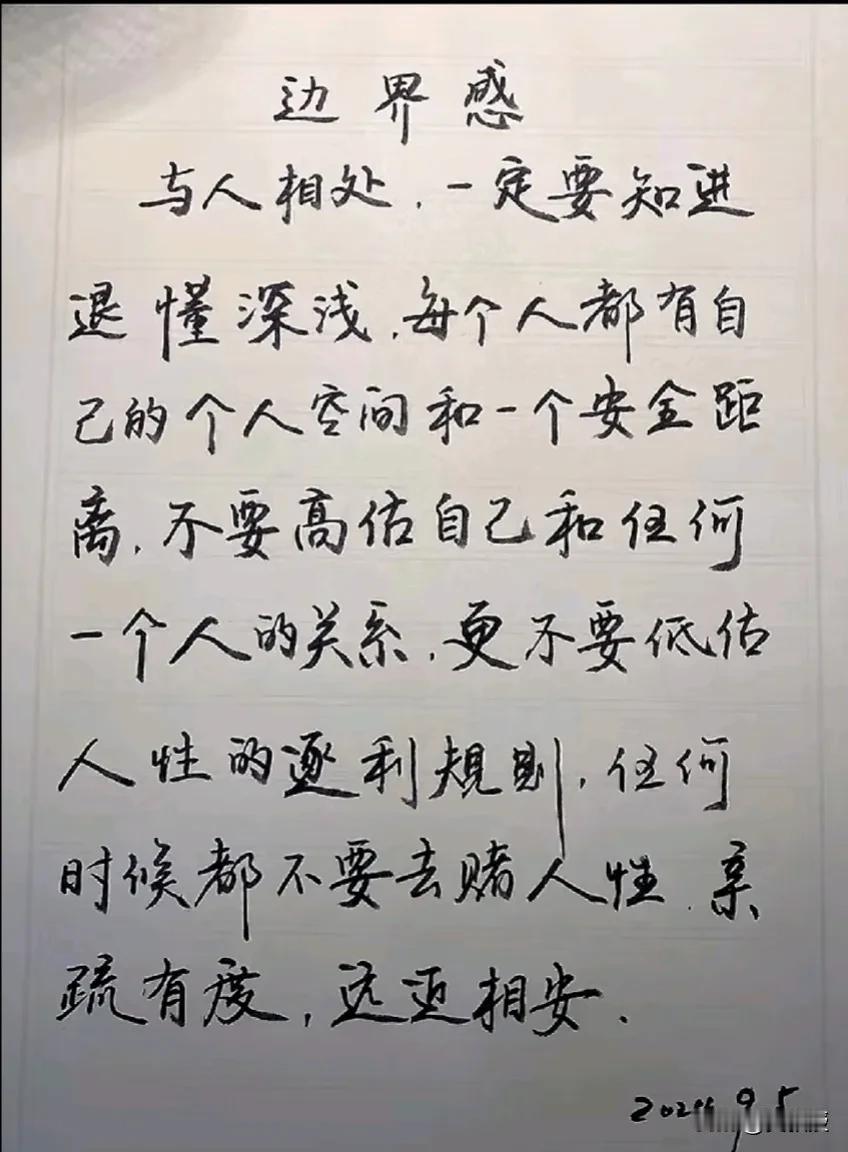 边界感
与人相处，一定要知进
退懂深浅，每个人都有自
己的个人空间和一个安全距
离，不要高估自己和任何
一个人的关系，更不要低估
人性的逐利规则，任何
时候都不要去赌人性．亲
疏有度，远近相安．
9.5